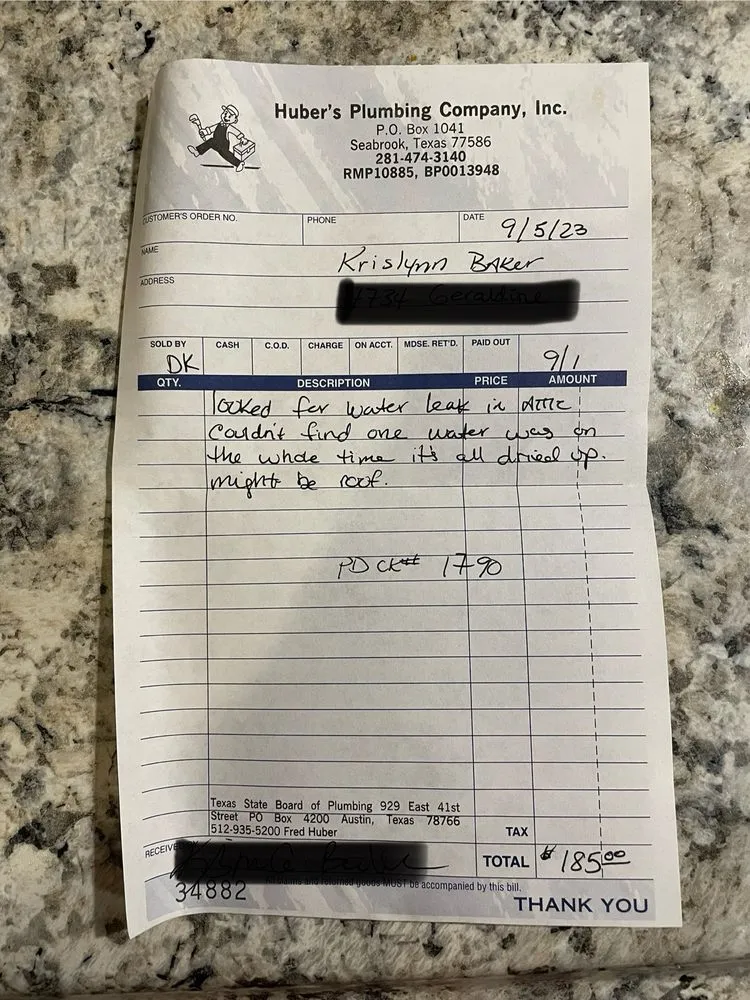 Huber's Plumbing Company, Inc.
P.O. Box 1041
Seabrook, Texas 77586
281-474-3140
RMP10885, BP0013948
CUSTOMER'S ORDER NO. PHONE DATE 9/5/23
NAME Krislynn Baker
ADDRESS
SOLD BY CASH C.O.D. CHARGE ON ACCT. MDSE. RET'D. PAID OUT
DK 9/1
QTY. DESCRIPTION PRICE AMOUNT
looked for water leak in Attic
Couldn't find one water was on
the whole time it's all dried up.
might be roof.
PD CK# 1790
Texas State Board of Plumbing 929 East 41st
Street PO Box 4200 Austin, Texas 78766
512-935-5200 Fred Huber
TAX
RECEIVED BY
TOTAL $185.00
34882
All claims and returned goods MUST be accompanied by this bill.
THANK YOU